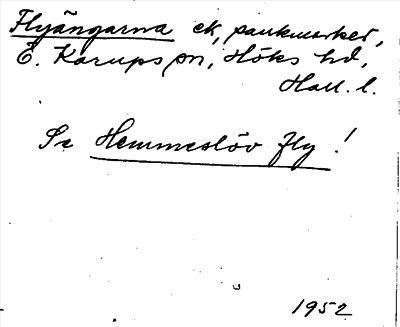 Flyängarna ek, sankmarker,
Ö. Karups sn, Höks hd,
Hall. l.
Se Hemmeslöv fly!
1952